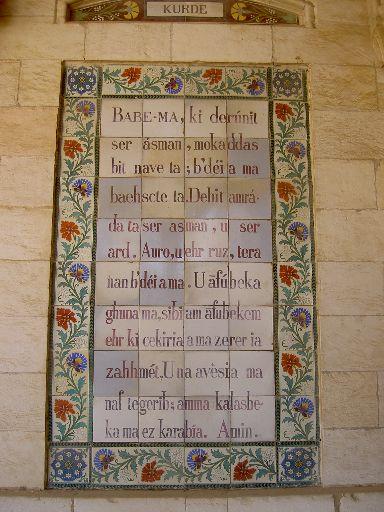 KURDE
BABE-MA, ki derúnit
ser ásman, mokaddas
bit nave ta; b'déi a ma
baehscte ta. Dehit amrá-
da ta ser asman, u ser
ard. Auro, u ehr ruz, tera
nan b'déi a ma. U áfúbeka
ghuna ma, sibi am áfubekem
ehr ki cekiria a ma zerer ia
zahhmét. U na avèsia ma
naf tegerib; amma kalashe-
ka ma ez karabía. Amin.